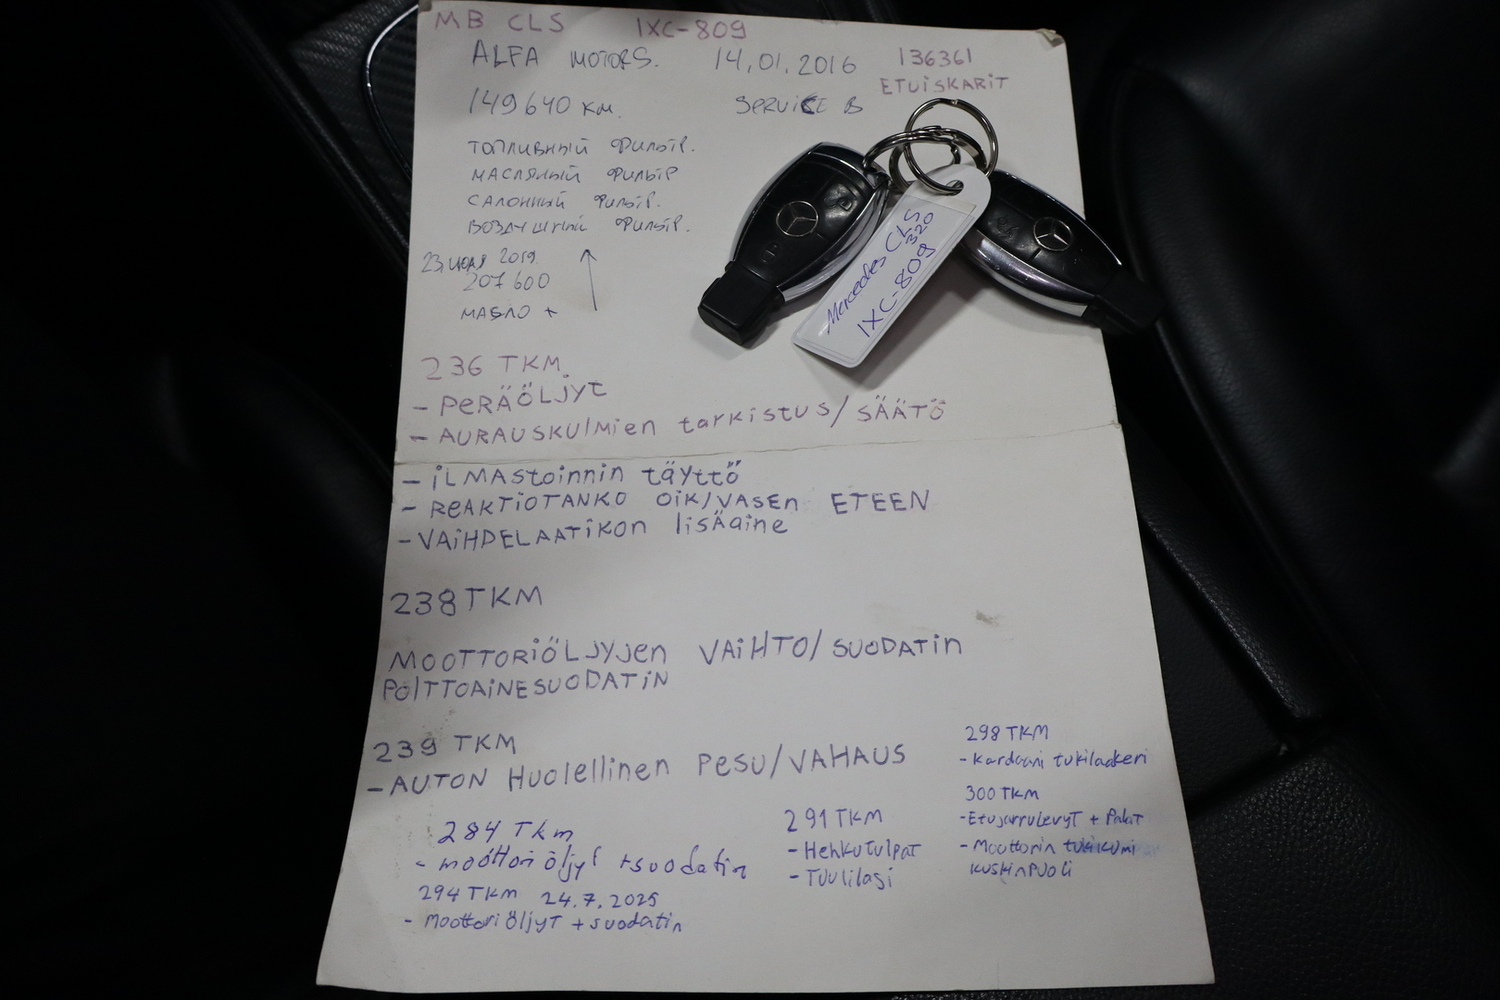 MB CLS IXC-809
ALFA MOTORS. 14.01.2016
136361
ETUISKARIT
149640 км. SERVICE B
ТОПЛИВНЫЙ ФИЛЬТР.
МАСЛЯНЫЙ ФИЛЬТР
САЛОННЫЙ ФИЛЬТР.
ВОЗДУШНЫЙ ФИЛЬТР.
23. 2019.
207 600
МАСЛО +
Mercedes CLS
320
IXC-809
236 TKM.
- PERÄÖLJYT
- AURAUSKULMIEN TARKISTUS/SÄÄTÖ
- ILMASTOINNIN TÄYTTÖ
- REAKTIOTANKO OIK/VASEN ETEEN
- VAIHDELAATIKON LISÄAINE
238 TKM
MOOTTORIÖLJYJEN VAIHTO/SUODATIN
POLTTOAINESUODATIN
239 TKM
- AUTON HUOLELLINEN PESU/VAHAUS
284 Tkm
- moottoriöljyt + suodatin
294 TKM 24.7.2025
- Moottoriöljyt + suodatin
291 TKM
- Hehkutulpat
- Tuulilasi
298 TKM
- Kardaani tukilaakeri
300 TKM
- Etujarrulevyt + Palat
- Moottorin tukikumi
kuskinpuoli